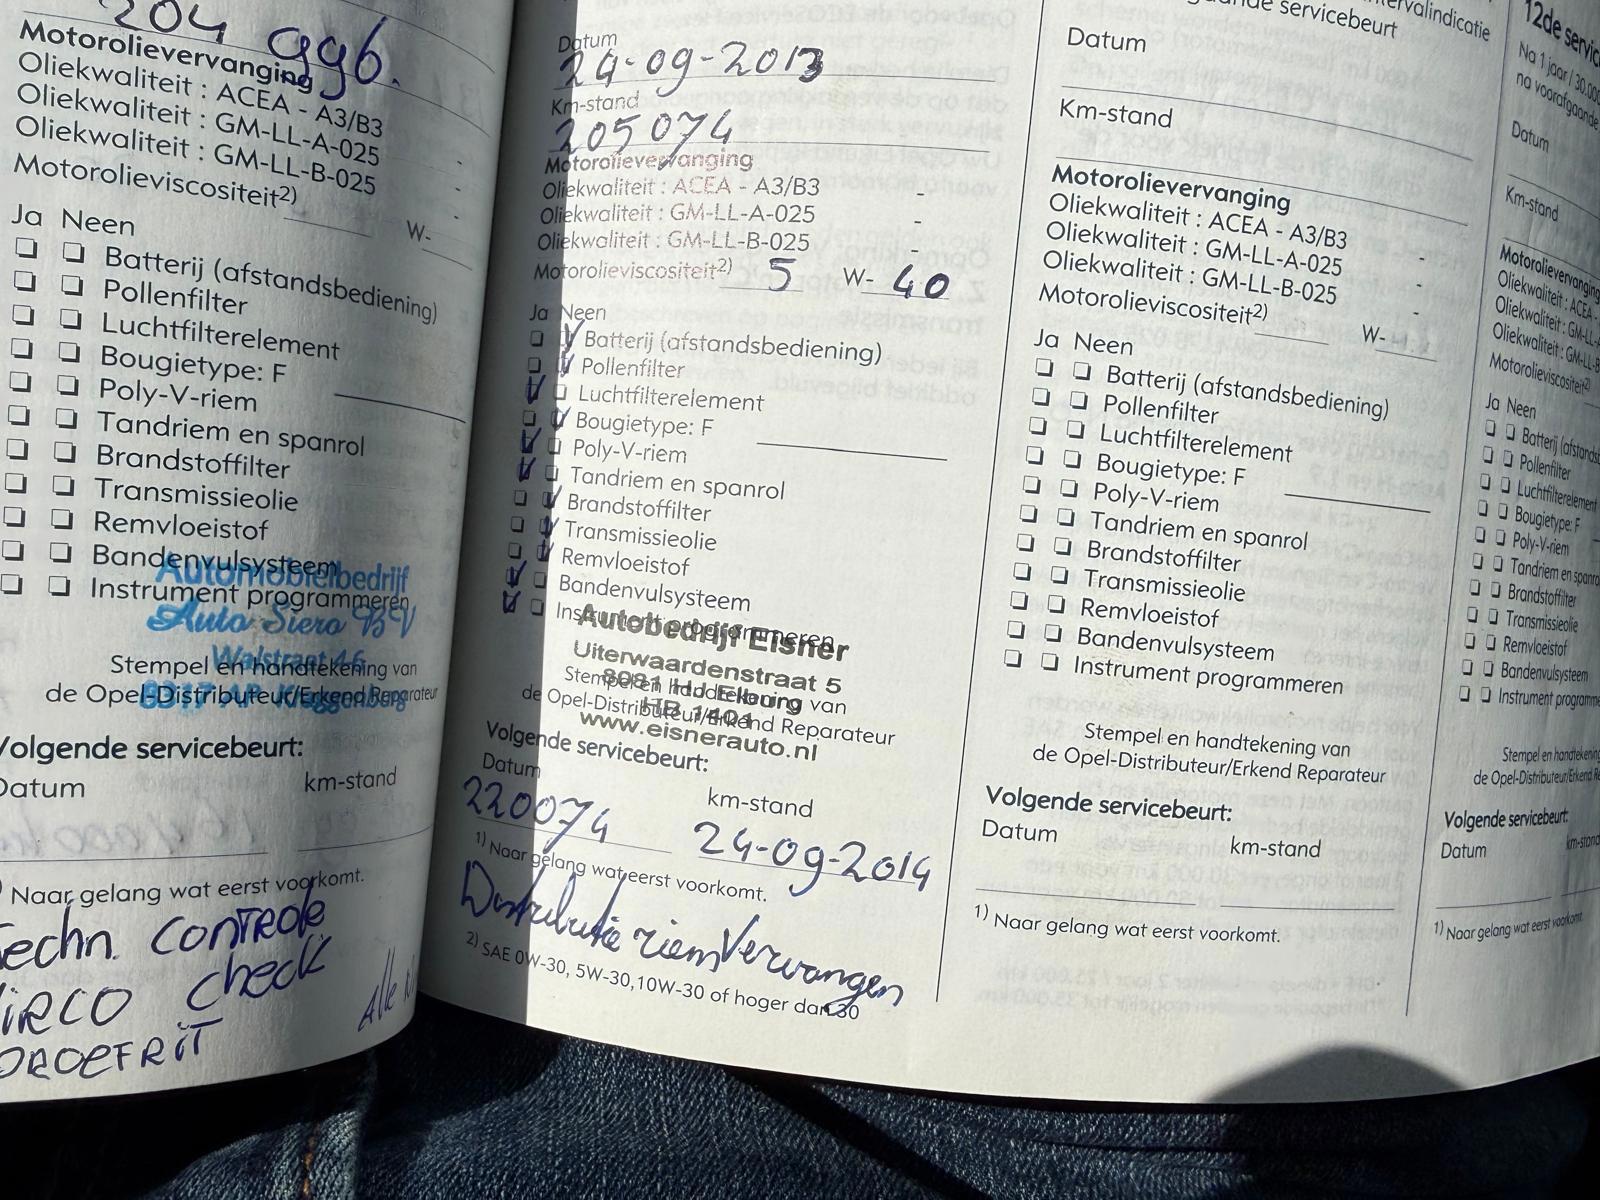 204 996.
Motorolievervanging
Oliekwaliteit : ACEA - A3/B3 -
Oliekwaliteit : GM-LL-A-025 -
Oliekwaliteit : GM-LL-B-025 -
Motorolieviscositeit2) W-
Ja Neen
Batterij (afstandsbediening)
Pollenfilter
Luchtfilterelement
Bougietype: F
Poly-V-riem
Tandriem en spanrol
Brandstoffilter
Transmissieolie
Remvloeistof
Bandenvulsysteem
Instrument programmeren
Automobielbedrijf
Auto Siero BV
Walstraat 46
Stempel en handtekening van
de Opel-Distributeur/Erkend Reparateur
Volgende servicebeurt:
Datum km-stand
Naar gelang wat eerst voorkomt.
Techn. CONTROLE
check
Datum
24-09-2013
Km-stand
205074
Motorolievervanging
Oliekwaliteit : ACEA - A3/B3 -
Oliekwaliteit : GM-LL-A-025 -
Oliekwaliteit : GM-LL-B-025 -
Motorolieviscositeit2) 5 W- 40
Ja Neen
Batterij (afstandsbediening)
Pollenfilter
Luchtfilterelement
Bougietype: F
Poly-V-riem
Tandriem en spanrol
Brandstoffilter
Transmissieolie
Remvloeistof
Bandenvulsysteem
Instrument programmeren
Autobedrijf Elsner
Uiterwaardenstraat 5
8081 HJ Elburg
HB 1404
www.eisnerauto.nl
Stempel en handtekening van
de Opel-Distributeur/Erkend Reparateur
Volgende servicebeurt:
Datum km-stand
220074 24-09-2014
1) Naar gelang wat eerst voorkomt.
Distributie riem Vervangen
2) SAE 0W-30, 5W-30,10W-30 of hoger dan 30
servicebeurt
Datum
Km-stand
Motorolievervanging
Oliekwaliteit : ACEA - A3/B3 -
Oliekwaliteit : GM-LL-A-025 -
Oliekwaliteit : GM-LL-B-025 -
Motorolieviscositeit2) W-
Ja Neen
Batterij (afstandsbediening)
Pollenfilter
Luchtfilterelement
Bougietype: F
Poly-V-riem
Tandriem en spanrol
Brandstoffilter
Transmissieolie
Remvloeistof
Bandenvulsysteem
Instrument programmeren
Stempel en handtekening van
de Opel-Distributeur/Erkend Reparateur
Volgende servicebeurt:
Datum km-stand
1) Naar gelang wat eerst voorkomt.
12de servic
Na 1 jaar / 30.000
na voorafgaande
Datum
Km-stand
Motorolievervanging
Oliekwaliteit : ACEA -
Oliekwaliteit : GM-LL-
Oliekwaliteit : GM-LL-B
Motorolieviscositeit2)
Ja Neen
Batterij (afstands
Pollenfilter
Luchtfilterelement
Bougietype: F
Poly-V-riem
Tandriem en spanro
Brandstoffilter
Transmissieolie
Remvloeistof
Bandenvulsysteem
Instrument programme
Stempel en handtekening
de Opel-Distributeur/Erkend Re
Volgende servicebeurt:
Datum km-stand
1) Naar gelang wat eerst voorkomt.